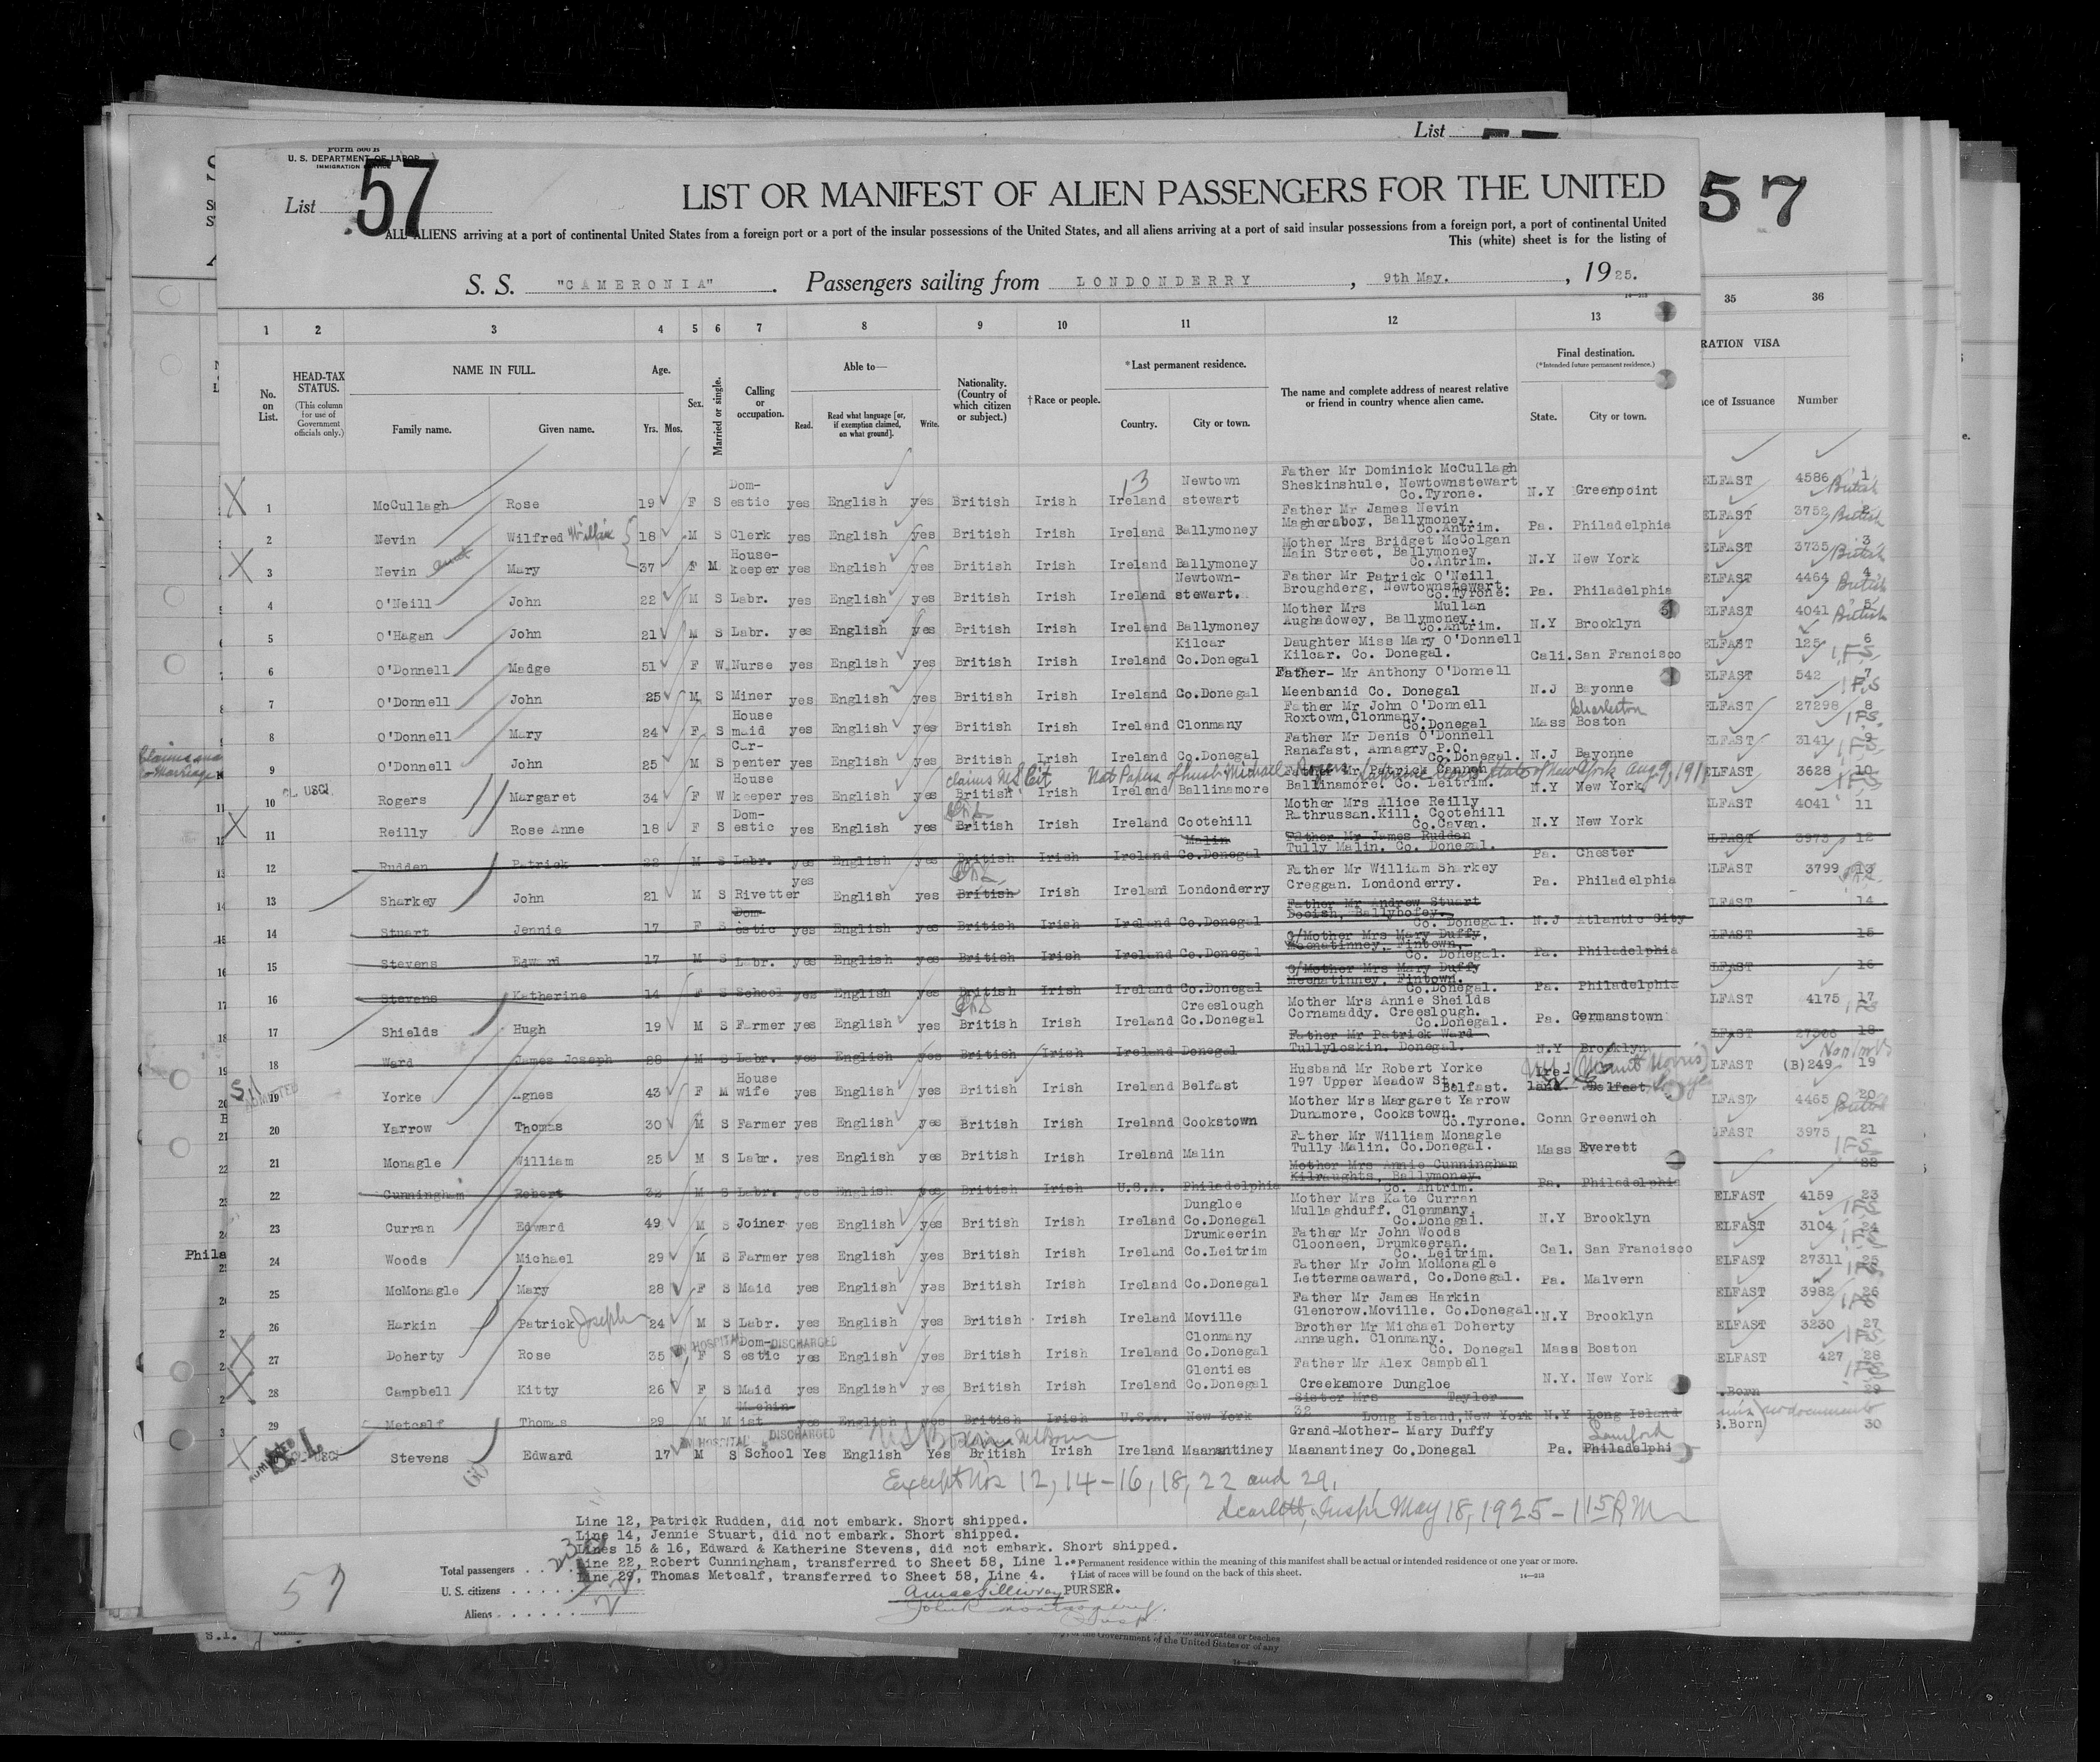 List
Form 500 B
U. S. DEPARTMENT OF LABOR
IMMIGRATION SERVICE
List 57
57
LIST OR MANIFEST OF ALIEN PASSENGERS FOR THE UNITED
ALL ALIENS arriving at a port of continental United States from a foreign port or a port of the insular possessions of the United States, and all aliens arriving at a port of said insular possessions from a foreign port, a port of continental United
This (white) sheet is for the listing of
S. S. "CAMERONIA". Passengers sailing from LONDONDERRY, 9th May. , 1925.
1 2 3 4 5 6 7 8 9 10 11 12 13 35 36
No. on List. HEAD-TAX STATUS. (This column for use of Government officials only.) NAME IN FULL. Family name. Given name. Age. Yrs. Mos. Sex. Married or single. Calling or occupation. Able to— Read. Read what language [or, if exemption claimed, on what ground]. Write. Nationality. (Country of which citizen or subject.) †Race or people. *Last permanent residence. Country. City or town. The name and complete address of nearest relative or friend in country whence alien came. Final destination. (*Intended future permanent residence.) State. City or town. RATION VISA ce of Issuance Number
1 McCullagh Rose 19 F S Dom-estic yes English yes British Irish Ireland Newtown stewart Father Mr Dominick McCullagh Sheskinshule, Newtownstewart Co.Tyrone. N.Y Greenpoint ELFAST 4586 1 British
2 Nevin Wilfred 18 M S Clerk yes English yes British Irish Ireland Ballymoney Father Mr James Nevin Magheraboy, Ballymoney. Co.Antrim. Pa. Philadelphia ELFAST 3752 2 British
3 Nevin Mary 37 F M House-keeper yes English yes British Irish Ireland Ballymoney Mother Mrs Bridget McColgan Main Street, Ballymoney Co.Antrim. N.Y New York ELFAST 3735 3 British
4 O'Neill John 22 M S Labr. yes English yes British Irish Ireland Newtown-stewart. Father Mr Patrick O'Neill Broughderg, Newtownstewart. Co.Tyrone. Pa. Philadelphia ELFAST 4464 4 British
5 O'Hagan John 21 M S Labr. yes English yes British Irish Ireland Ballymoney Mother Mrs Mullan Aughadowey, Ballymoney. Co.Antrim. N.Y Brooklyn ELFAST 4041 5 British
6 O'Donnell Madge 51 F W Nurse yes English yes British Irish Ireland Kilcar Co.Donegal Daughter Miss Mary O'Donnell Kilcar. Co. Donegal. Cali. San Francisco ELFAST 125 6 IFS
7 O'Donnell John 25 M S Miner yes English yes British Irish Ireland Co.Donegal Father- Mr Anthony O'Donnell Meenbanid Co. Donegal N.J Bayonne ELFAST 542 7 IFS
8 O'Donnell Mary 24 F S House maid yes English yes British Irish Ireland Clonmany Father Mr John O'Donnell Roxtown,Clonmany. Co.Donegal Mass Boston Charleston ELFAST 27298 8 IFS.
9 O'Donnell John 25 M S Car-penter yes English yes British Irish Ireland Co.Donegal Father Mr Denis O'Donnell Ranafast, Annagry P.O. Co.Donegal. N.J Bayonne ELFAST 3141 9 IFS
claims US Cit Nat Papers of husb. Michael Rogers Supreme Court State of New York Aug 9, 191
10 CL USCI. Rogers Margaret 34 F W House keeper yes English yes British Irish Ireland Ballinamore Father Mr Patrick Gannon Ballinamore. Co. Leitrim. N.Y New York ELFAST 3628 10 IFS
11 Reilly Rose Anne 18 F S Dom-estic yes English yes British Irish Ireland Cootehill Mother Mrs Alice Reilly Rathrussan.Kill. Cootehill Co.Cavan. N.Y New York ELFAST 4041 11
12 Rudden Patrick 22 M S Labr. yes English yes British Irish Ireland Malin Co.Donegal Father Mr James Rudden Tully Malin. Co. Donegal. Pa. Chester ELFAST 3973 12
13 Sharkey John 21 M S Rivetter yes English yes British Irish Ireland Londonderry Father Mr William Sharkey Creggan. Londonderry. Pa. Philadelphia ELFAST 3799 13
14 Stuart Jennie 17 F S Dom-estic yes English yes British Irish Ireland Co.Donegal Father Mr Andrew Stuart Dooish, Ballybofey. Co. Donegal. N.J Atlantic City ELFAST 14
15 Stevens Edward 17 M S Labr. yes English yes British Irish Ireland Co.Donegal G/Mother Mrs Mary Duffy, Meenatinney, Fintown, Co. Donegal. Pa. Philadelphia ELFAST 15
16 Stevens Katherine 14 F S School yes English yes British Irish Ireland Co.Donegal G/Mother Mrs Mary Duffy Meenatinney, Fintown. Co.Donegal. Pa. Philadelphia ELFAST 16
17 Shields Hugh 19 M S Farmer yes English yes British Irish Ireland Creeslough Co.Donegal Mother Mrs Annie Sheilds Cornamaddy. Creeslough. Co.Donegal. Pa. Germanstown ELFAST 4175 17 IFS
18 Ward James Joseph 28 M S Labr. yes English yes British Irish Ireland Donegal Father Mr Patrick Ward Tullyloskin. Donegal. N.Y Brooklyn ELFAST 18
19 Yorke Agnes 43 F M House wife yes English yes British Irish Ireland Belfast Husband Mr Robert Yorke 197 Upper Meadow St. Belfast. Ire-land Belfast. ELFAST (B)249 19
20 Yarrow Thomas 30 M S Farmer yes English yes British Irish Ireland Cookstown Mother Mrs Margaret Yarrow Dunamore, Cookstown. Co.Tyrone. Conn Greenwich LFAST 4465 20 British
21 Monagle William 25 M S Labr. yes English yes British Irish Ireland Malin Father Mr William Monagle Tully Malin. Co.Donegal. Mass Everett LFAST 3975 21 IFS
22 Cunningham Robert 32 M S Labr. yes English yes British Irish U.S.A. Philadelphia Mother Mrs Annie Cunningham Kilraughts, Ballymoney. Co. Antrim. Pa. Philadelphia 22
23 Curran Edward 49 M S Joiner yes English yes British Irish Ireland Dungloe Co.Donegal Mother Mrs Kate Curran Mullaghduff. Clonmany. Co.Donegal. N.Y Brooklyn ELFAST 4159 23 IFS
24 Woods Michael 29 M S Farmer yes English yes British Irish Ireland Drumkeerin Co.Leitrim Father Mr John Woods Clooneen, Drumkeeran. Co. Leitrim. Cal. San Francisco ELFAST 3104 24 IFS
25 McMonagle Mary 28 F S Maid yes English yes British Irish Ireland Co.Donegal Father Mr John McMonagle Lettermacaward, Co.Donegal. Pa. Malvern ELFAST 27311 25 IFS
26 Harkin Patrick Joseph 24 M S Labr. yes English yes British Irish Ireland Moville Father Mr James Harkin Glencrow.Moville. Co.Donegal. N.Y Brooklyn ELFAST 3982 26 IFS
27 Doherty Rose 35 IN HOSPITAL DISCHARGED F S Dom-estic yes English yes British Irish Ireland Clonmany Co.Donegal Brother Mr Michael Doherty Annaugh. Clonmany. Co. Donegal Mass Boston ELFAST 3230 27 IFS
28 Campbell Kitty 26 F S Maid yes English yes British Irish Ireland Glenties Co.Donegal Father Mr Alex Campbell Creekamore Dungloe N.Y. New York ELFAST 427 28 IFS
29 Metcalf Thomas 29 M M Machin-ist yes English yes British Irish U.S.A. New York Sister Mrs Taylor 32 Long Island,New York N.Y Long Island .Born 29
30 ADMITTED S.I. USCI Stevens Edward 17 IN HOSPITAL DISCHARGED M S School Yes English Yes British Irish Ireland Maanantiney Grand-Mother- Mary Duffy Maanantiney Co.Donegal Pa. Philadelphi S.Born) no documents 30
Except Nos 12, 14-16, 18, 22 and 29.
Scarlett, Inspr May 18, 1925 - 1 15 P M
Line 12, Patrick Rudden, did not embark. Short shipped.
Line 14, Jennie Stuart, did not embark. Short shipped.
Lines 15 & 16, Edward & Katherine Stevens, did not embark. Short shipped.
Line 22, Robert Cunningham, transferred to Sheet 58, Line 1.
Line 29, Thomas Metcalf, transferred to Sheet 58, Line 4.
*Permanent residence within the meaning of this manifest shall be actual or intended residence of one year or more.
†List of races will be found on the back of this sheet.
14—213
Total passengers
U. S. citizens
Aliens
PURSER.
57
Phila
of the Government of the United States or of any